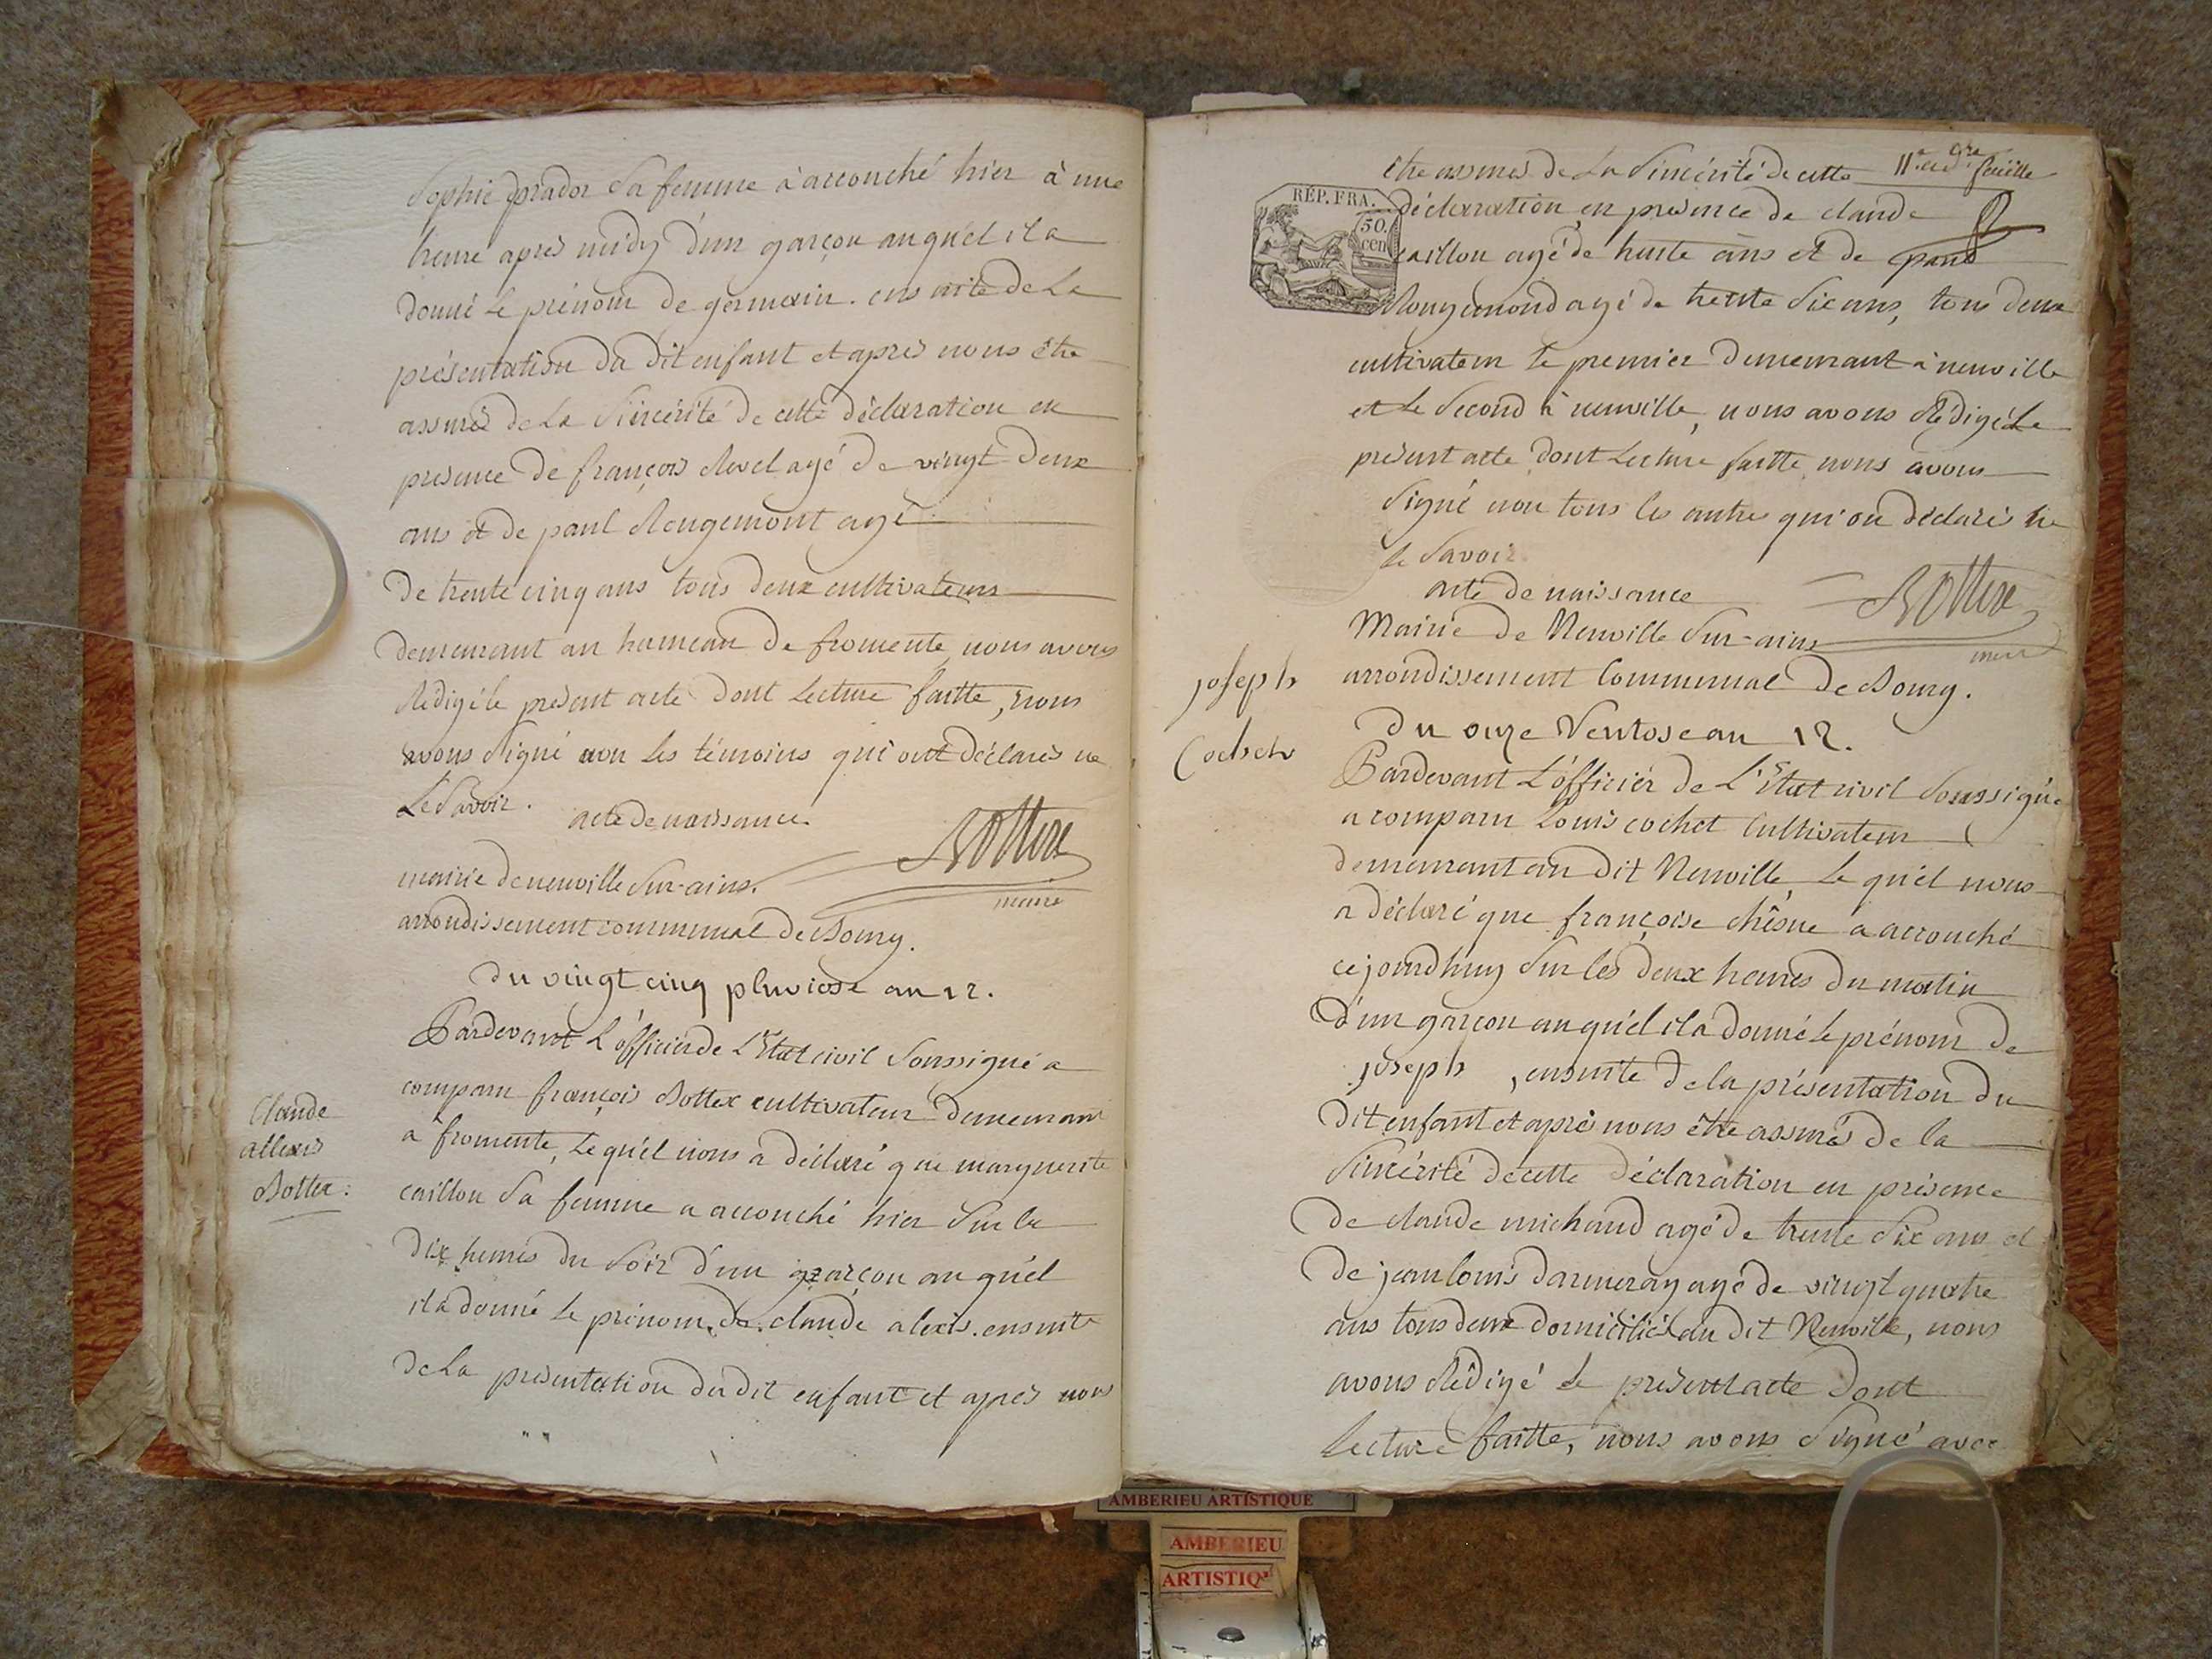 Sophie prador Sa femme à accouché hier à une
heure apres midy d'un garçon auquel il a
donné le prénom de germain. ensuite de La
présentation du dit enfant et apres nous être
assurés de La Sincérité de cette déclaration en
presence de françois Revel agé de vingt deux
ans et de paul Rougemont agé
De trente cinq ans tous deux cultivateurs
demeurant au hameau de fromente, nous avons
Rédigé le present acte dont Lecture faitte, nous
avons Signé non les témoins qui ont déclarés ne
Le Savoir. acte de naissance.
Bottex
maire
mairie de neuville Sur-ains.
arrondissement communal de Bourg.
du vingt cinq pluviose an 12.
Pardevant L'officier de L'Etat civil Soussigné a
comparu françois Bottex cultivateur demeurant
à fromente, Lequ'el nous a déclaré que marguerite
caillon Sa femme a accouché hier Sur le
Dix heures du Soir d'un garçon auqu'el
il à donné Le prénom de claude alexis. ensuite
de La présentation du dit enfant et apres nous
Claude
allexis
Bottex:
11.e et d.re feuille
être assurés de La Sincérité de cette
RÉP. FRA.
50. cen
déclaration en presence de claude
caillon agé de trente ans et de paul
Rougemond agé de trente Six ans, tous deux
cultivateur le premier demeurant à neuville
et Le Second à neuville, nous avons Rédigé Le
présent acte dont Lecture faitte nous avons
Signé non tous les autres qui on déclarés ne
le Savoir.
acte de naissance
Bottex
maire
Mairie de Neuville Sur-ains
arrondissement Communal de Bourg.
Du onze Ventose an 12.
joseph
Cochet
Pardevant L'officiér de L'Etat civil Soussigné
a comparu Louis cochet Cultivateur
demeurant au dit Neuville, Le qu'el nous
a déclaré que françoise chêsne a accouché
cejourdhuy Sur les deux heures du matin
D'un garçon auqu'el il a donné Le prénom de
joseph, ensuite de la présentation du
Dit enfant et apres nous être assurés de la
Sincérité de cette déclaration en présence
De claude michaud agé de trente Six ans et
De jean louis darmeray agé de vingt quatre
ans tous deux domicilié au dit Neuville, nous
avons Rédigé Le présent acte dont
Lecture faitte, nous avons Signé avec
AMBERIEU ARTISTIQUE
AMBERIEU
ARTISTIQ